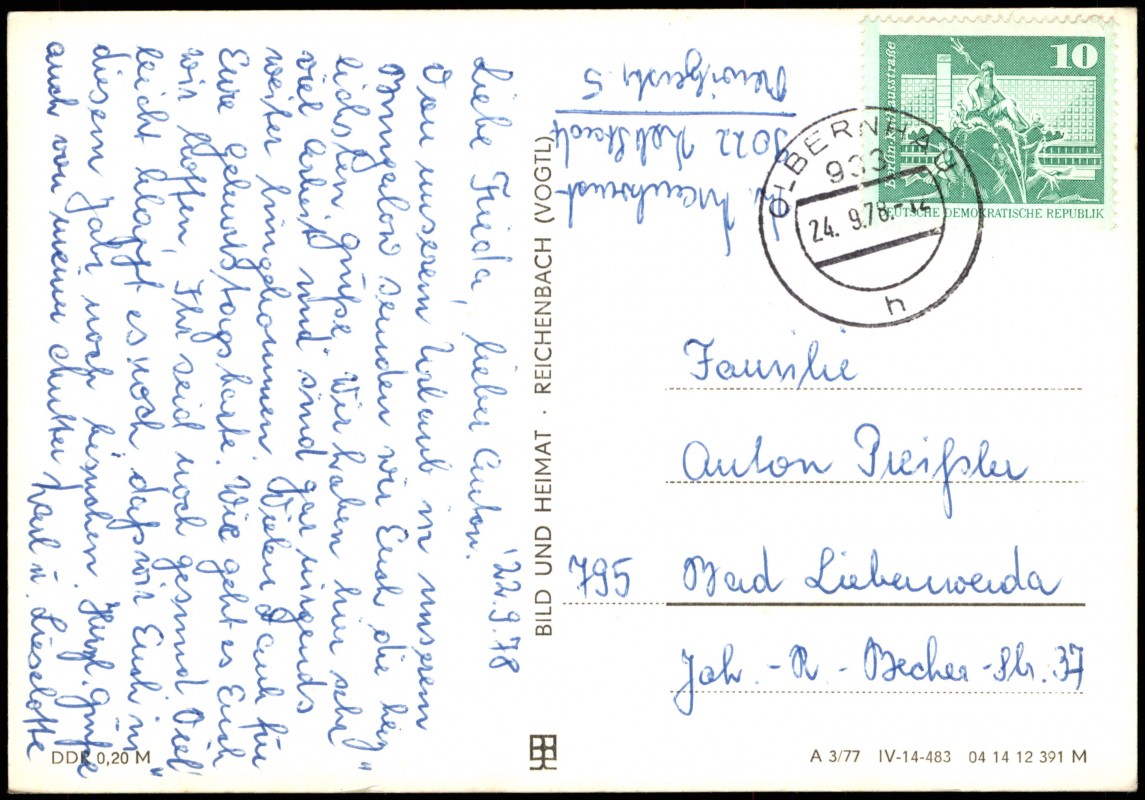 22.9.78
Liebe Frieda, lieber Anton.
Von unserem Urlaub in unserem
Bungalow senden wir Euch die herz„
lichsten Grüße. Wir haben hier sehr
viel Arbeit und sind gar nirgends
weiter hingekommen. Vielen Dank für
Eure Geburtstagskarte. Wie geht es Euch
wir hoffen, Ihr seid noch gesund. Viel„
leicht klappt es noch, daß wir Euch in
diesem Jahr noch besuchen. Herzl. Grüße
auch von meiner Mutter
Karl u. Lieselotte
5
BILD UND HEIMAT · REICHENBACH (VOGTL)
10
Berlin Rathausstraße
DEUTSCHE DEMOKRATISCHE REPUBLIK
OLBERNHAU
933
24. 9.78.-12
h
Familie
Anton Preißler
795 Bad Liebenwerda
Joh.-R.-Becher-Str. 37
DDR 0,20 M
A 3/77 IV-14-483 04 14 12 391 M